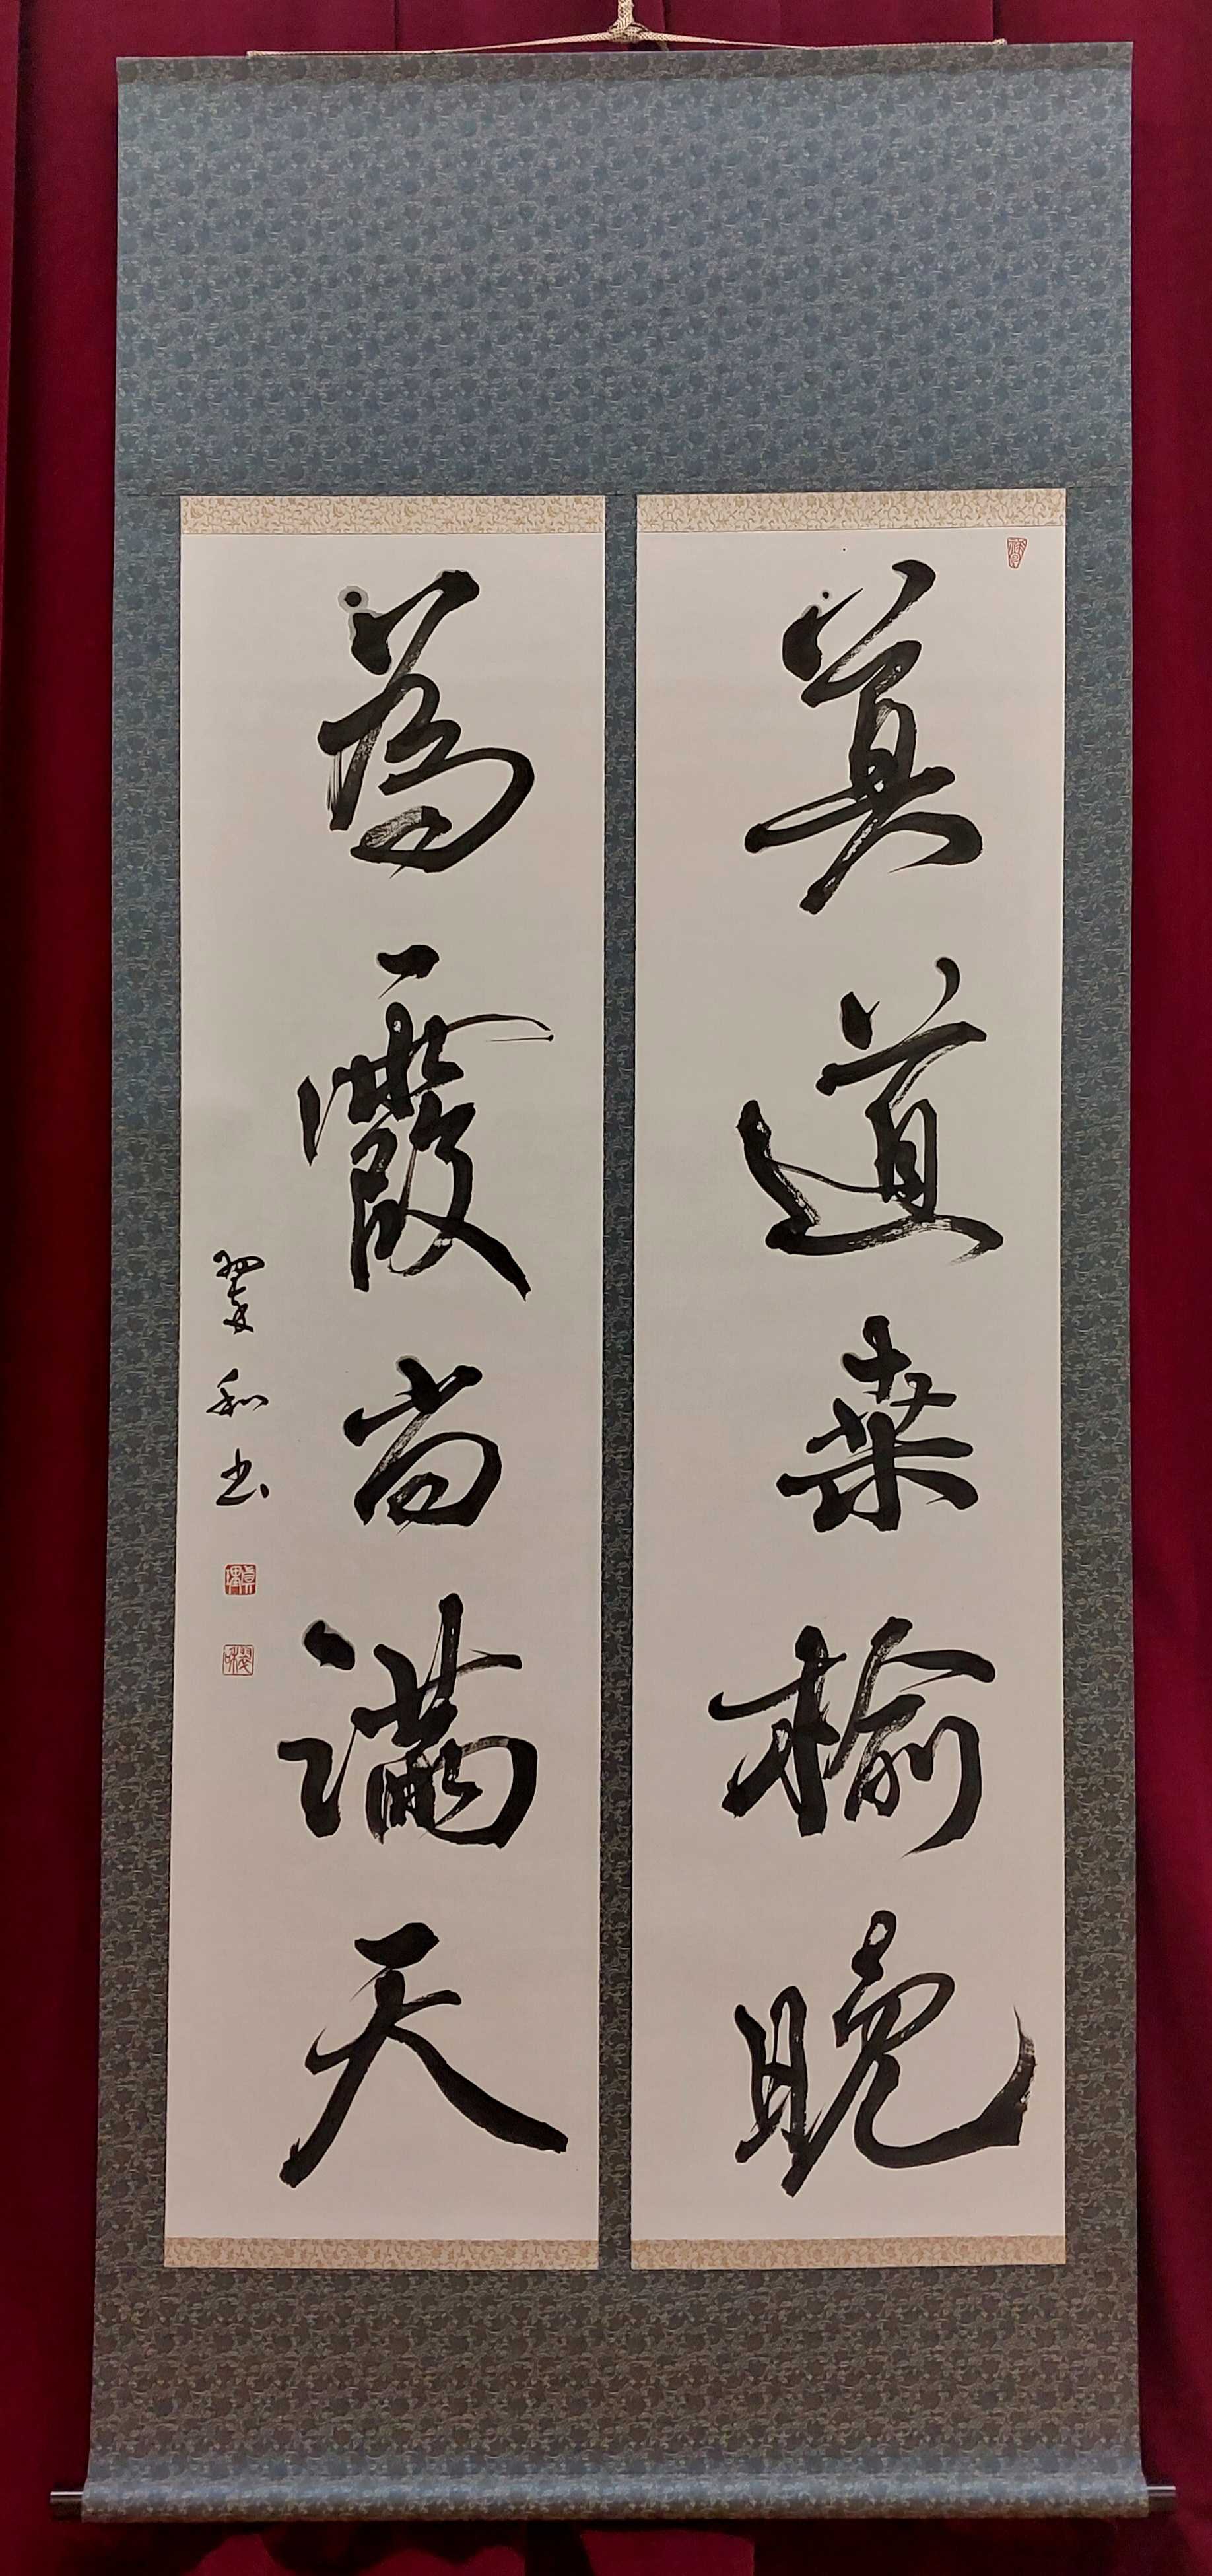 莫道桑榆晚
為霞尚滿天
翠和书